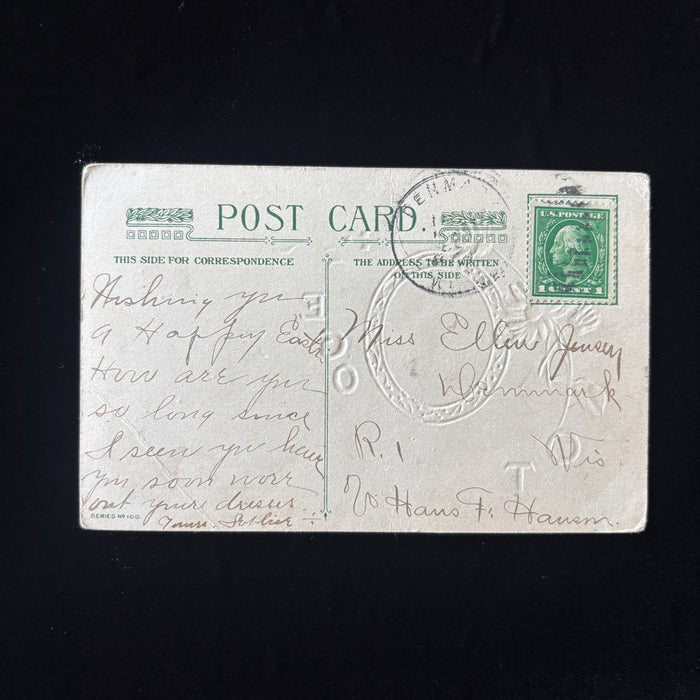 POST CARD.
THIS SIDE FOR CORRESPONDENCE
THE ADDRESS TO BE WRITTEN
ON THIS SIDE
DENMARK
WIS.
U.S. POSTAGE
1 CENT 1
Wishing you
a Happy Easter
How are you
so long since
I seen you have
you soon wore
out your dresses.
Yours,
SERIES No 100.
Miss Ellen Jensen
Denmmark
R. 1 Wis.
c/o Hans F. Hanson.